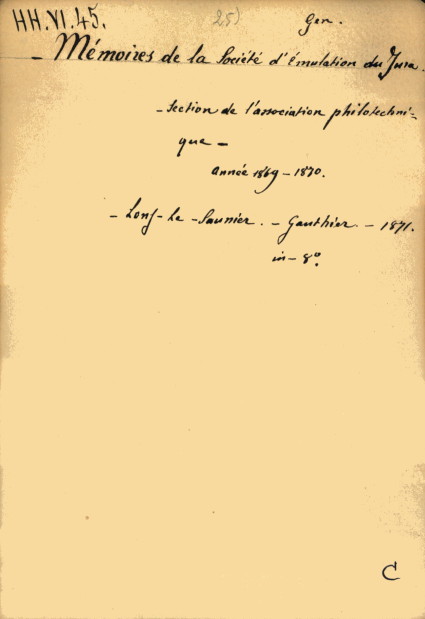 HH.VI.45. 25) Gen.
– Mémoires de la Société d'Émulation du Jura.
– Section de l'association philotechni-
que –
année 1869 – 1870.
– Lons-le-Saunier. – Gauthier. – 1871.
in-8°.
C